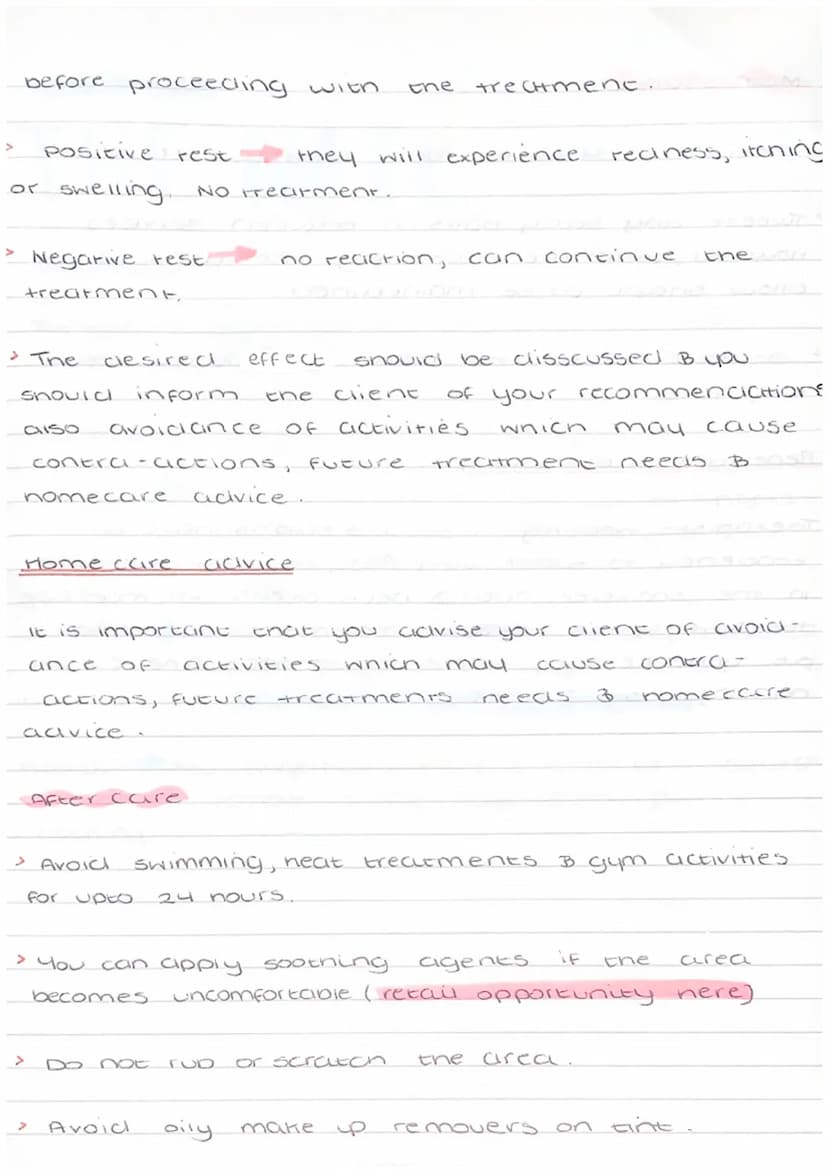 before proceeding with the treatment.
> Positive test → they will experience redness, itching
or swelling. No treatment.
> Negative test → no reaction, can continue the
treatment.
> The desired effect should be disscussed & you
should inform the client of your recommendations
also avoidance of activities which may cause
contra-actions, future treatment needs &
homecare advice.
Home care advice
It is important that you advise your client of avoid-
ance of activities which may cause contra-
actions, future treatments needs & homecare
advice.
After care
> Avoid swimming, heat treatments & gym activities
for upto 24 hours.
> You can apply soothing agents if the area
becomes uncomfortable (retail opportunity here)
> Do not rub or scratch the area.
> Avoid oily make up removers on tint.